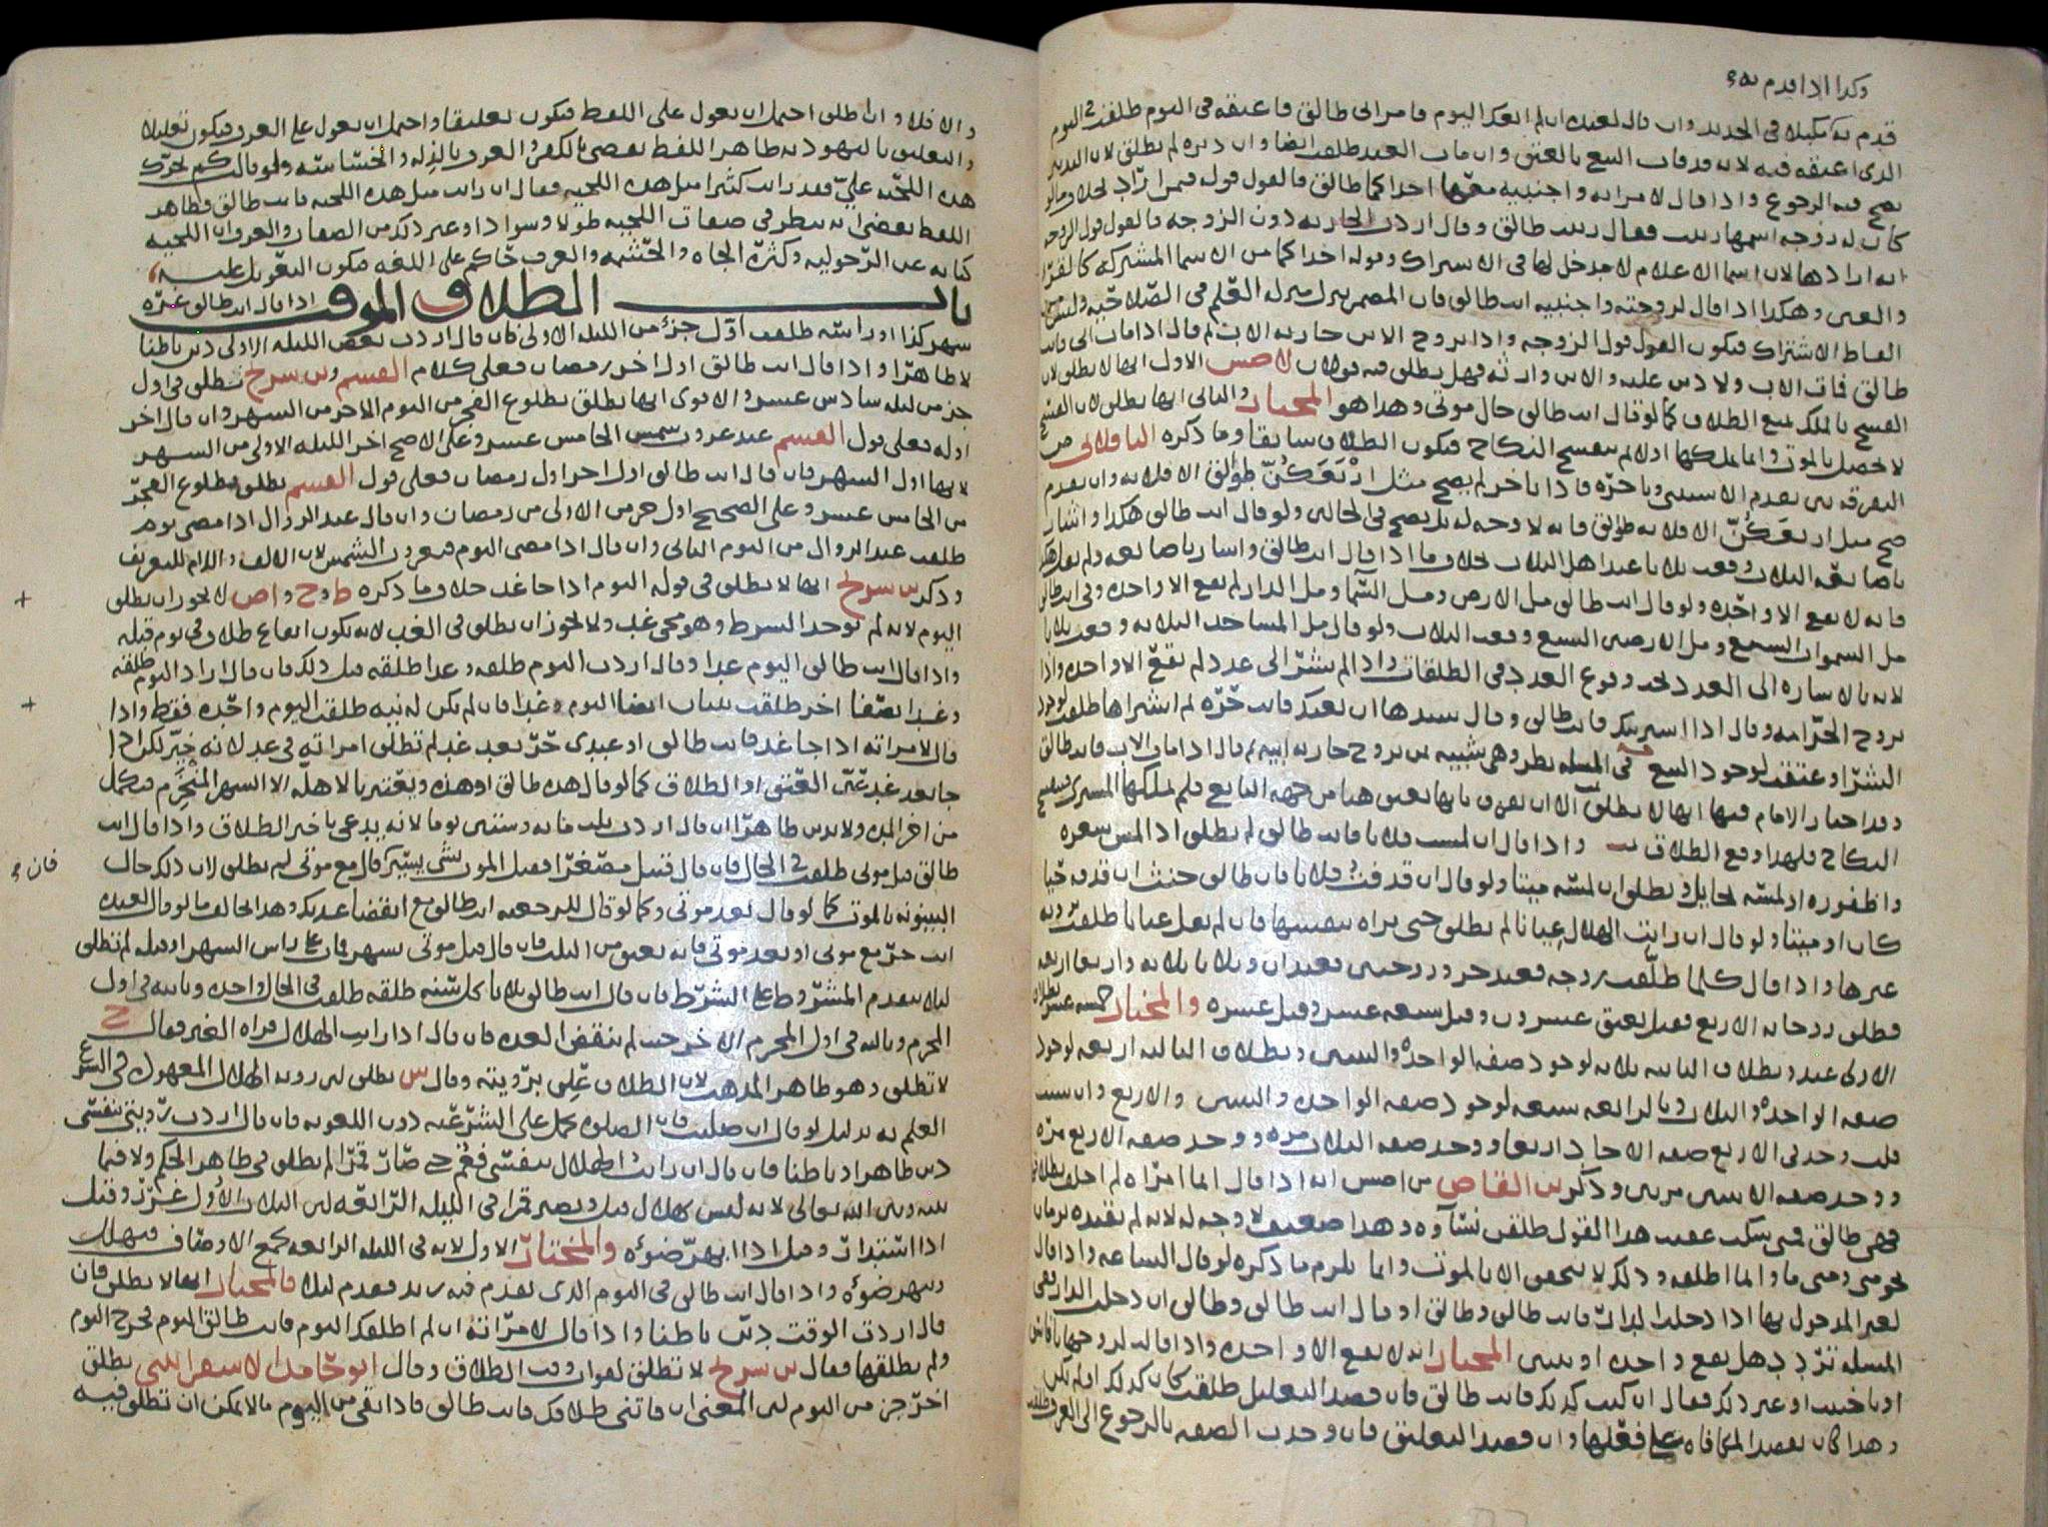 وكذا اذا قدم به
قدم به مكبلا في الحديد وان قال لعبده ان لم ابعك اليوم فامراتي طالق فاعتقه في اليوم طلقت في اليوم
الذي اعتقه فيه لانه قد فات البيع بالعتق وان مات العبد طلقت ايضا وان دبره لم تطلق لان التدبير
يصح فيه الرجوع واذا قال لامراته واجنبيه معها احداكما طالق فالقول قوله فيمن اراد بخلاف ما لو
كان له زوجه اسمها زينب فقال زينب طالق وقال اردت الجاريه دون الزوجه فالقول قول الزوجه
انه ارادها لان اسما الاعلام لا مدخل لها في الاشتراك وقوله احداكما من الاسما المشتركه كالقرا
والعين وهكذا اذا قال لزوجته واجنبيه انت طالق فان المضمر ينزل منزله العلم في الصلاحيه وليس من
الفاظ الاشتراك فيكون القول قول الزوجه واذا تزوج الابن جاريه الاب ثم قال اذا مات ابي فانت
طالق فمات الاب ولا دين عليه والابن وارثه فهل يطلق فيه قولان الاول انها لا تطلق لان
الفسخ بالملك يمنع الطلاق كما لو قال انت طالق حال موتي وهذا هو المختار والثاني انها تطلق لان الفسخ
لا يحصل بالموت وانما يملكها اذ لا لم ينفسخ النكاح فيكون الطلاق سابقا وما ذكره الباقلاني من
التفرقه بين تقدم الاستثنا وتاخره فاذا تاخر لم يصح مثل اربعكن طوالق الا فلانه وان تقدم
صح مثل اربعكن الا فلانه طوالق فانه لا وجه له بل يصح في الحالين ولو قال انت طالق هكذا واشار
باصابعه الثلاث وقعت ثلاثا عند اهل الثلاث بخلاف ما اذا قال انت طالق واشار باصابعه ولم يقل هكذا
فانه لا يقع الا واحده ولو قال انت طالق مثل الارض ومثل السما ومثل الدار لم يقع الا واحده وفي انت طالق
مثل السموات السبع ومثل الارضين السبع وقعت الثلاث ولو قال مثل المساجد الثلاثه وقعت ثلاثا
لانه بالاشاره الى العدد تحدد وقوع العدد في الطلقات واذا لم يشر الى عدد لم تقع الا واحده واذا
تزوج الحر امه وقال اذا اشتريتك فانت طالق وقال سيدها ان بعتك فانت حره ثم اشتراها طلقت لوجود
الشرا وعتقت لوجود البيع وفي المسله نظر وهي شبيهه بمن تزوج جاريه ابيه ثم قال اذا مات الاب فانت طالق
وقد اختار الامام فيها انها لا تطلق الا ان يفرق بانها تعتق هنا من جهه البايع فلم يملكها المشتري فينفسخ
النكاح فلهذا وقع الطلاق واذا قال ان لمست فلانا فانت طالق لم تطلق اذا لمس شعره
واظفوره او لمسه بحايل وتطلق ان لمسه ميتا ولو قال ان قذفت فلانا فانت طالق حنث ان قذفه حيا
كان او ميتا ولو قال ان رايت الهلال عيانا لم تطلق حتى تراه بنفسها فان لم يقل عيانا طلقت برويه
غيرها واذا قال كلما طلقت زوجه فعبد حر وزوجتين فعبدان وثلاثا ثلاثه واربعا اربعه
فطلق زوجاته الاربع فقيل يعتق عشرون وقيل سبعه عشر وقيل عشره والمختار خمسه عشر بطلاق
الاولى عبد وبطلاق الثانيه ثلاثه لوجود صفه الواحده والثنتين وبطلاق الثالثه اربعه لوجود
صفه الواحده والثلاث وبالرابعه سبعه لوجود صفه الواحده والثنتين والاربع وان شئت
قلت وجد في الاربع صفه الاحاد اربعا ووجد صفه الثلاث مره ووجد صفه الاربع مره
ووجد صفه الاثنين مرتين وذكر بن القاص انه اذا قال ايما امراه لم احلف بطلاقها
فهي طالق فمتى سكت عقيب هذا القول طلقن نساوه وهذا ضعيف لا وجه له لانه لم يقيده بزمان
نحو متى ومتى ما وانما اطلقه وذلك لا يتحقق الا بالموت وانما يلزم ما ذكره لو قال الساعه واذا قال
لغير المدخول بها اذا دخلت الدار فانت طالق وطالق او قال انت طالق وطالق ان دخلت الدار ففي
المسله تردد هل يقع واحده او ثنتين المختار انه لا يقع الا واحده واذا قالت لزوجها يا فاسق
او يا خبيث او غير ذلك فقال ان كنت كذلك فانت طالق فان قصد التعليل طلقت كان كذلك او لم يكن
وهذا كان يقصد المكافاه على فعلها وان قصد التعليق فان وجدت الصفه بالرجوع الى العرف طلقت
والا فلا وان اطلق احتمل ان يعول على اللفظ فيكون تعليقا واحتمل ان يعول على العرف فيكون تعليلا
والتعليق باليهوديه ظاهر اللفظ يقضي بالكفر والعرف بالذله والخساسه ولو قالت كم تحرك
هذه اللحيه علي فقد رايت كثيرا مثل هذه اللحيه فقال ان رايت مثل هذه اللحيه فانت طالق فظاهر
اللفظ يقضي انه ينظر في صفات اللحيه طولا وسوادا وغير ذلك من الصفات والعرف ان اللحيه
كنايه عن الرجوليه وكثره الجاه والحشمه والعرف حاكم على اللغه فيكون التعويل عليه
باب الطلاق الموقت اذا قال انت طالق غره
شهر كذا او راسه طلقت اول جزء من الليله الاولى فان قال اردت بعض الليله الاولى دين باطنا
لا ظاهرا واذا قال انت طالق اول اخر رمضان فعلى كلام القسم وبن سريج تطلق في اول
جز من ليله سادس عشر والاقوى انها تطلق بطلوع الفجر من اليوم الاخر من الشهر وان قال اخر
اوله فعلى قول القسم عند غروب شمس الخامس عشر وعلى الاصح اخر الليله الاولى من الشهر
لانها اول الشهر فان قال انت طالق اول اخر اول رمضان فعلى قول القسم تطلق بطلوع الفجر
من الخامس عشر وعلى الصحيح اول جز من الاولى من رمضان وان قال عند الزوال اذا مضى يوم
طلقت عند الزوال من اليوم الثاني وان قال اذا مضى اليوم فبغروب الشمس لان الالف واللام للتعريف
وذكر بن سريج انها لا تطلق في قوله اليوم اذا جا غد خلاف ما ذكره ط وح واص لا يجوز ان تطلق
اليوم لانه لم يوجد الشرط وهو مجي غد ولا يجوز ان تطلق في الغد لانه يكون ايقاع طلاق في يوم قبله
واذا قال انت طالق اليوم غدا وقال اردت اليوم طلقه وغدا طلقه قبل ذلك فان قال اراد اليوم طلقه
وغدا نصفا اخر طلقت ثنتان ايضا اليوم وغدا فان لم يكن له نيه طلقت اليوم واحده فقط واذا
قال لامراته اذا جا غد فانت طالق او عبدي حر بعد غد لم تطلق امراته في غد لانه خير لكن اذا
جا بعد غد عين العتق او الطلاق كما لو قال هذه طالق او هذه ويعتبر بالاهله الا الشهر المنخرم فيكمل
من اخر المده ولا يدين ظاهرا ان قال اردت بثلث مايه وستين يوما لانه يدعي تاخير الطلاق واذا قال انت
طالق قبل موتي طلقت في الحال فان قال قبيل مصغرا فقبل الموت بشي يسير كان قال مع موتي لم تطلق لان ذلك حال
البينونه بالموت كما لو قال بعد موتي وكما لو قال للرجعيه انت طالق مع انقضا عدتك وهذا بخلاف ما لو قال لعبده
انت حر مع موتي او بعد موتي فانه يعتق من الثلث فان قال قبل موتي بشهر فمات على راس الشهر او قبله لم تطلق
ليلا يتقدم المشروط على الشرط فان قال انت طالق ثلاثا كل سنه طلقه طلقت في الحال واحده وثانيه في اول
المحرم وثالثه في اول المحرم الاخر حيث لم تنقض العده فان قال اذا رايت الهلال فراه الغير فقال ح
لا تطلق وهو ظاهر المذهب لان الطلاق علق برويته وقال س تطلق لان رويه الهلال المعهود في الشرع
العلم به بدليل لو قال ان صليت فان الصلوه تحمل على الشرعيه دون اللغويه فان قال اردت رويتي بنفسي
دين ظاهرا وباطنا فان قال ان رايت الهلال بنفسي فغم حتى صار قمرا لم تطلق في ظاهر الحكم ولا فيما
بينه وبين الله تعالى لانه ليس بهلال قيل ويصير قمرا في الليله الرابعه لان الثلاث الاول غرر وقيل
اذا استدار وقيل اذا بهر ضوءه والمختار الاول لانه في الليله الرابعه يجمع الاوصاف فيهلك
ويبهر ضوءه واذا قال انت طالق في اليوم الذي يقدم فيه زيد فقدم ليلا فالمختار انها لا تطلق فان
قال اردت الوقت دين باطنا واذا قال لامراته ان لم اطلقك اليوم فانت طالق اليوم فخرج اليوم
ولم يطلقها فقال بن سريج لا تطلق لفوات وقت الطلاق وقال ابو حامد الاسفرائيني تطلق
اخر جز من اليوم لان المعنى ان فاتني طلاقك فانت طالق فاذا بقي من اليوم ما لا يمكن ان تطلق فيه
فان